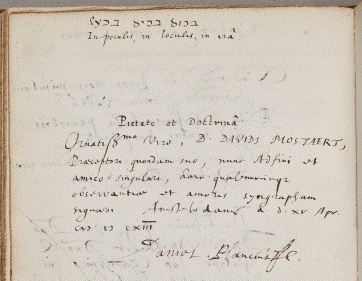 בכוס בכיס בכעס
In poculis, in loculis, in irâ
Pietate et Doctrinâ
Ornatissmo Viro, D. DAVIDI MOSTAERT,
Præceptori quondam suo, nunc Adfini et
amico singulari, hanc qualemcunque
observantiæ et amoris syngrapham
signavi Amstelodami a. d. XV Apr.
CIƆ IƆ CXIII
Daniel Plancius